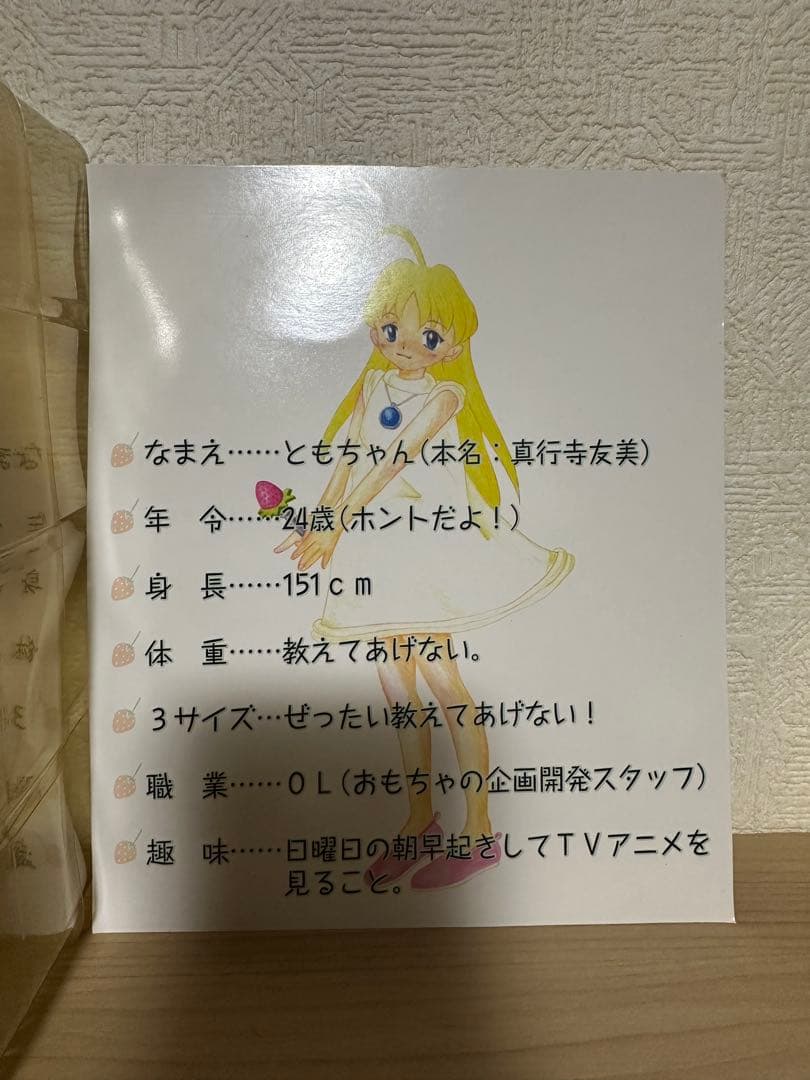 なまえ……ともちゃん(本名：真行寺友美)
年　令……24歳(ホントだよ！)
身　長……151ｃｍ
体　重……教えてあげない。
３サイズ…ぜったい教えてあげない！
職　業……ＯＬ(おもちゃの企画開発スタッフ)
趣　味……日曜日の朝早起きしてＴＶアニメを
見ること。